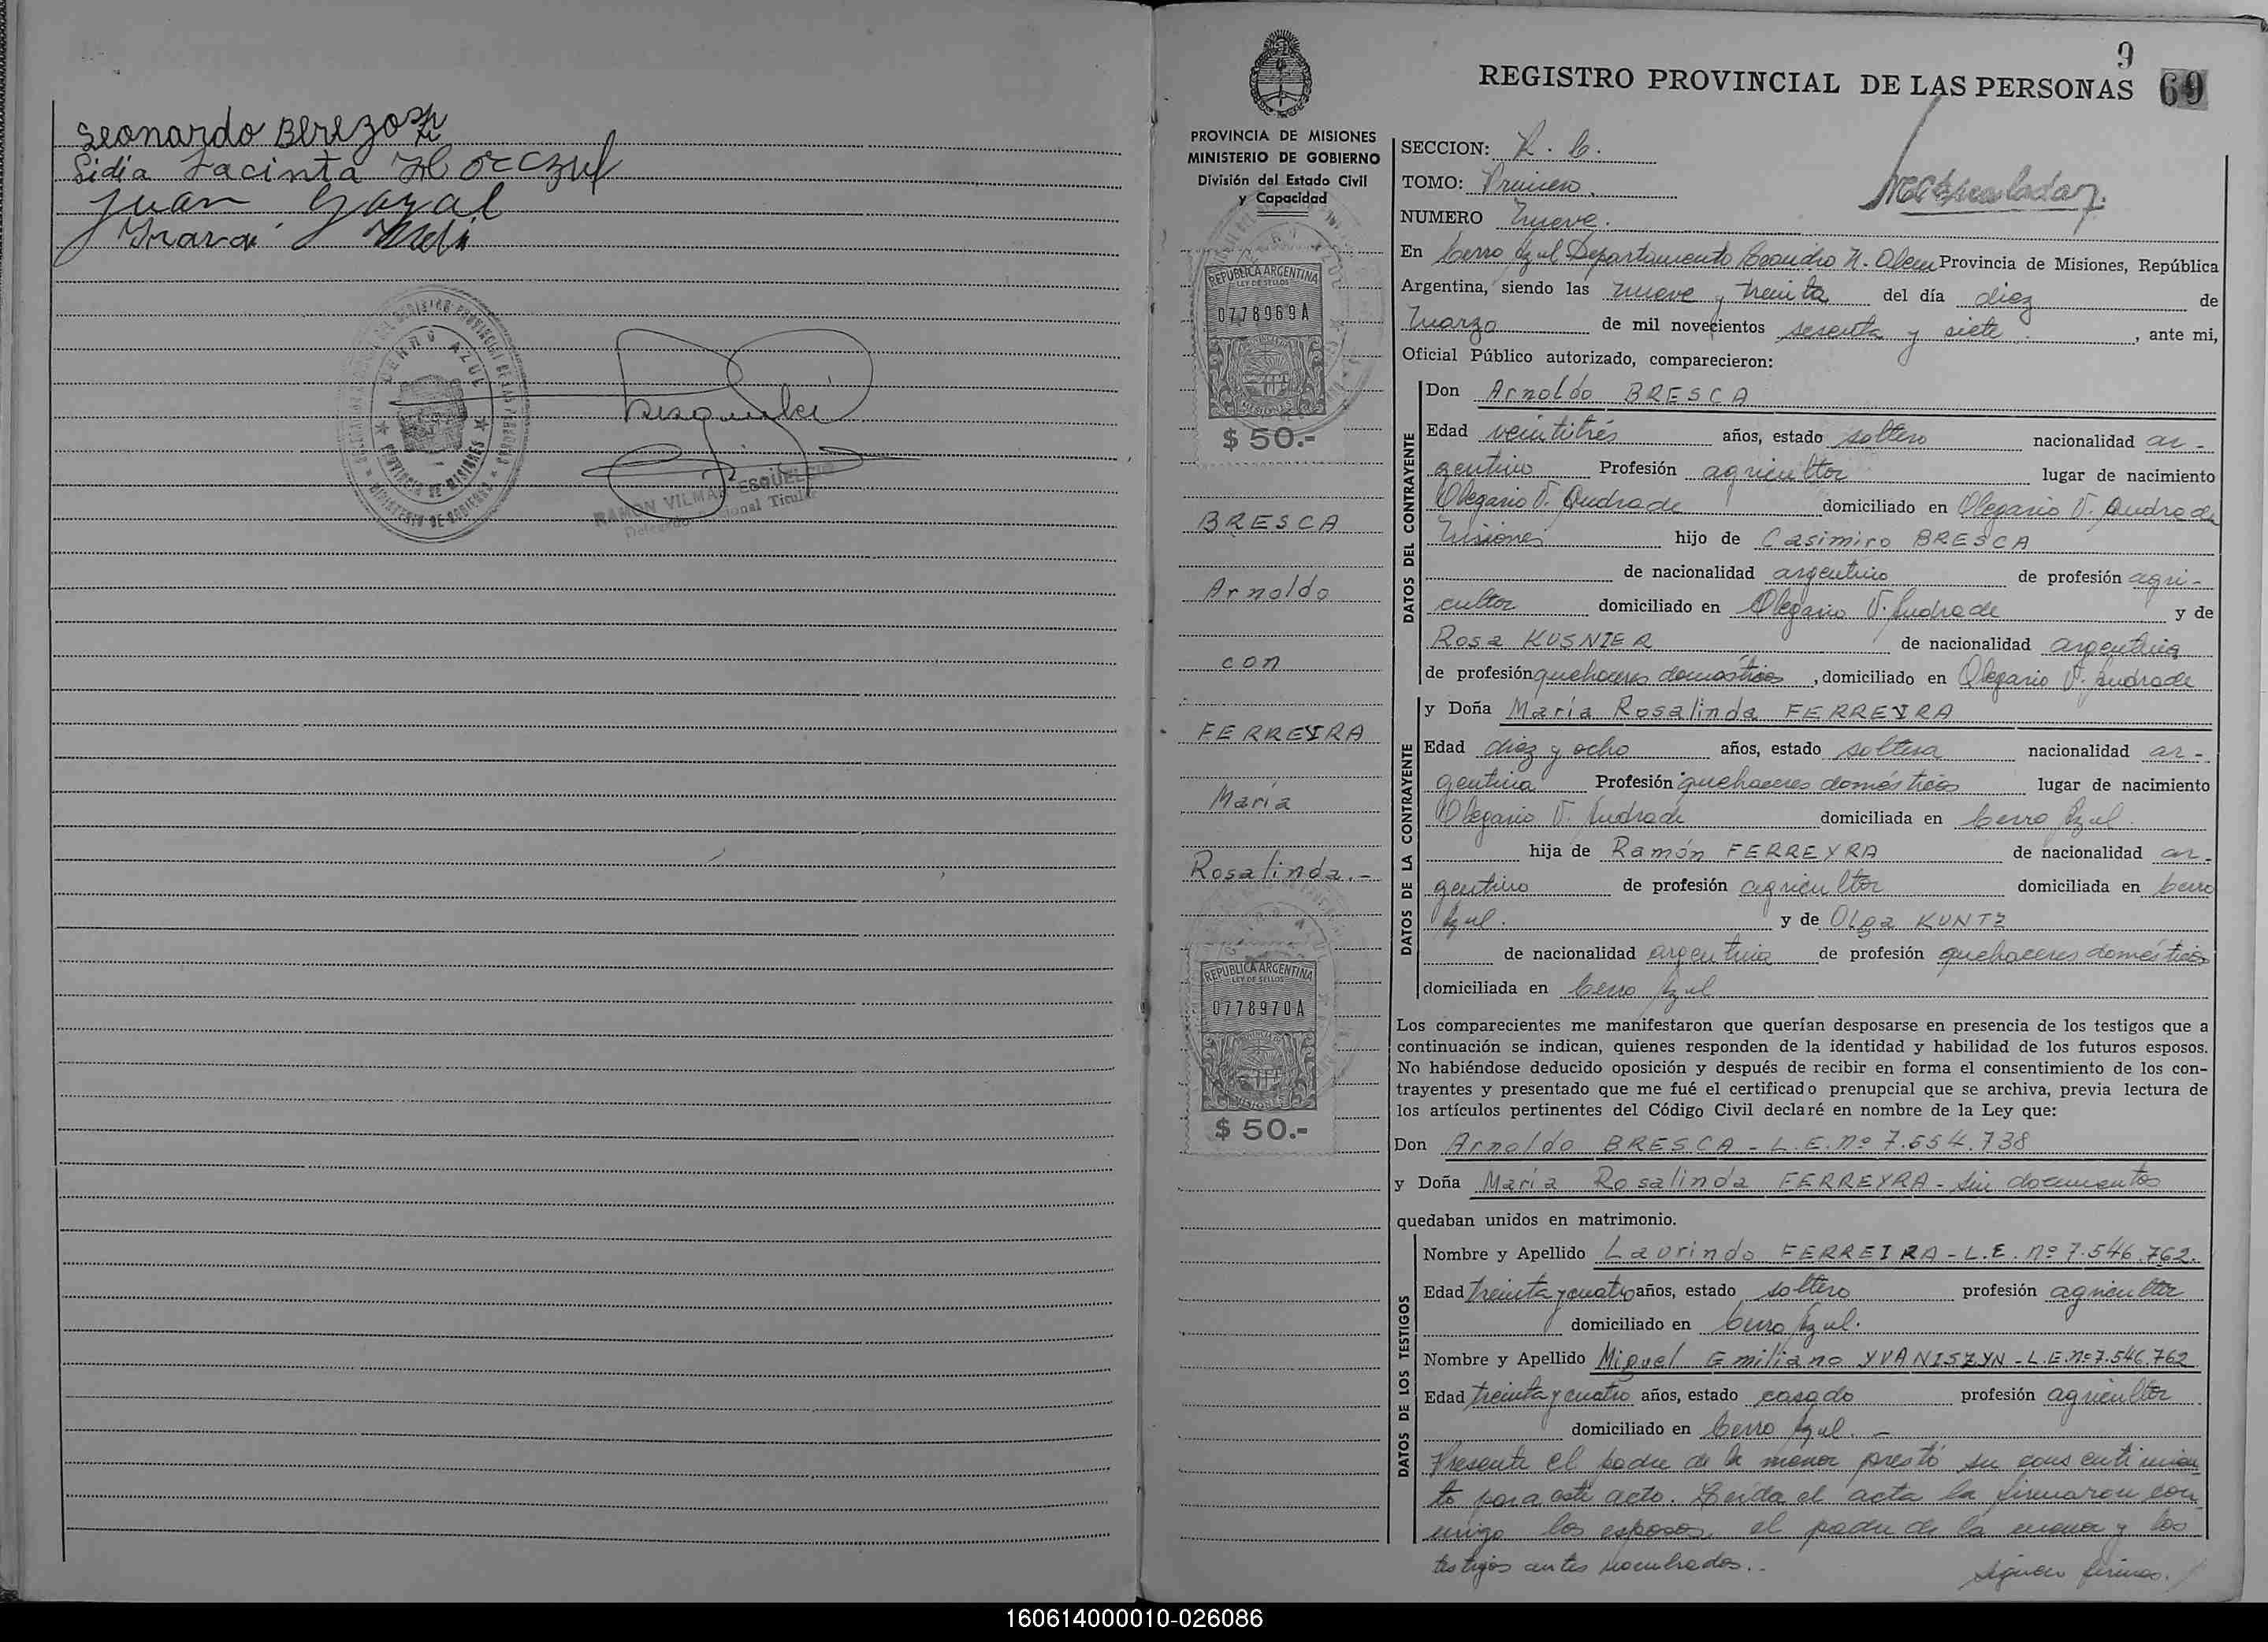 Leonardo Berezoski
Lidia Jacinta
Juan
RAMON VILMAR ESQUIVEL
Titular
CERRO AZUL
PROVINCIA DE MISIONES
9
REGISTRO PROVINCIAL DE LAS PERSONAS 69
PROVINCIA DE MISIONES
MINISTERIO DE GOBIERNO
División del Estado Civil
y Capacidad
REPUBLICA ARGENTINA
LEY DE SELLOS
0778969A
MISIONES
$ 50.-
BRESCA
Arnoldo
con
FERREYRA
María
Rosalinda.-
REPUBLICA ARGENTINA
LEY DE SELLOS
0778970A
MISIONES
$ 50.-
SECCION: R. C.
TOMO: Primero.
NUMERO Nueve.
En Cerro Azul Departamento Leandro N. Alem Provincia de Misiones, República
Argentina, siendo las nueve y treinta del día diez de
Marzo de mil novecientos sesenta y siete , ante mi,
Oficial Público autorizado, comparecieron:
DATOS DEL CONTRAYENTE
Don Arnoldo BRESCA
Edad veintitrés años, estado soltero nacionalidad ar-
gentino Profesión agricultor lugar de nacimiento
Olegario V. Andrade domiciliado en Olegario V. Andrade
Misiones hijo de Casimiro BRESCA
de nacionalidad argentino de profesión agri-
cultor domiciliado en Olegario V. Andrade y de
Rosa KUSNIER de nacionalidad argentina
de profesión quehaceres domésticos , domiciliado en Olegario V. Andrade
DATOS DE LA CONTRAYENTE
y Doña María Rosalinda FERREYRA
Edad diez y ocho años, estado soltera nacionalidad ar-
gentina Profesión quehaceres domésticos lugar de nacimiento
Olegario V. Andrade domiciliada en Cerro Azul.
hija de Ramón FERREYRA de nacionalidad ar-
gentino de profesión agricultor domiciliada en Cerro
Azul. y de Olga KUNTZ
de nacionalidad argentina de profesión quehaceres domésticos
domiciliada en Cerro Azul
Los comparecientes me manifestaron que querían desposarse en presencia de los testigos que a
continuación se indican, quienes responden de la identidad y habilidad de los futuros esposos.
No habiéndose deducido oposición y después de recibir en forma el consentimiento de los con-
trayentes y presentado que me fué el certificado prenupcial que se archiva, previa lectura de
los artículos pertinentes del Código Civil declaré en nombre de la Ley que:
Don Arnoldo BRESCA - L.E. nº 7.554.738
y Doña María Rosalinda FERREYRA - sin documentos
quedaban unidos en matrimonio.
DATOS DE LOS TESTIGOS
Nombre y Apellido Laurindo FERREIRA - L.E. nº 7.546.762.
Edad treinta y cuatro años, estado soltero profesión agricultor
domiciliado en Cerro Azul.
Nombre y Apellido Miguel Emiliano YVANISZYN - L.E. nº 7.546.762
Edad treinta y cuatro años, estado casado profesión agricultor
domiciliado en Cerro Azul. -
Presente el padre de la menor prestó su consentimien-
to para este acto. Leída el acta la firmaron con-
migo los esposos, el padre de la menor y los
testigos antes nombrados.- Siguen firmas.
160614000010-026086